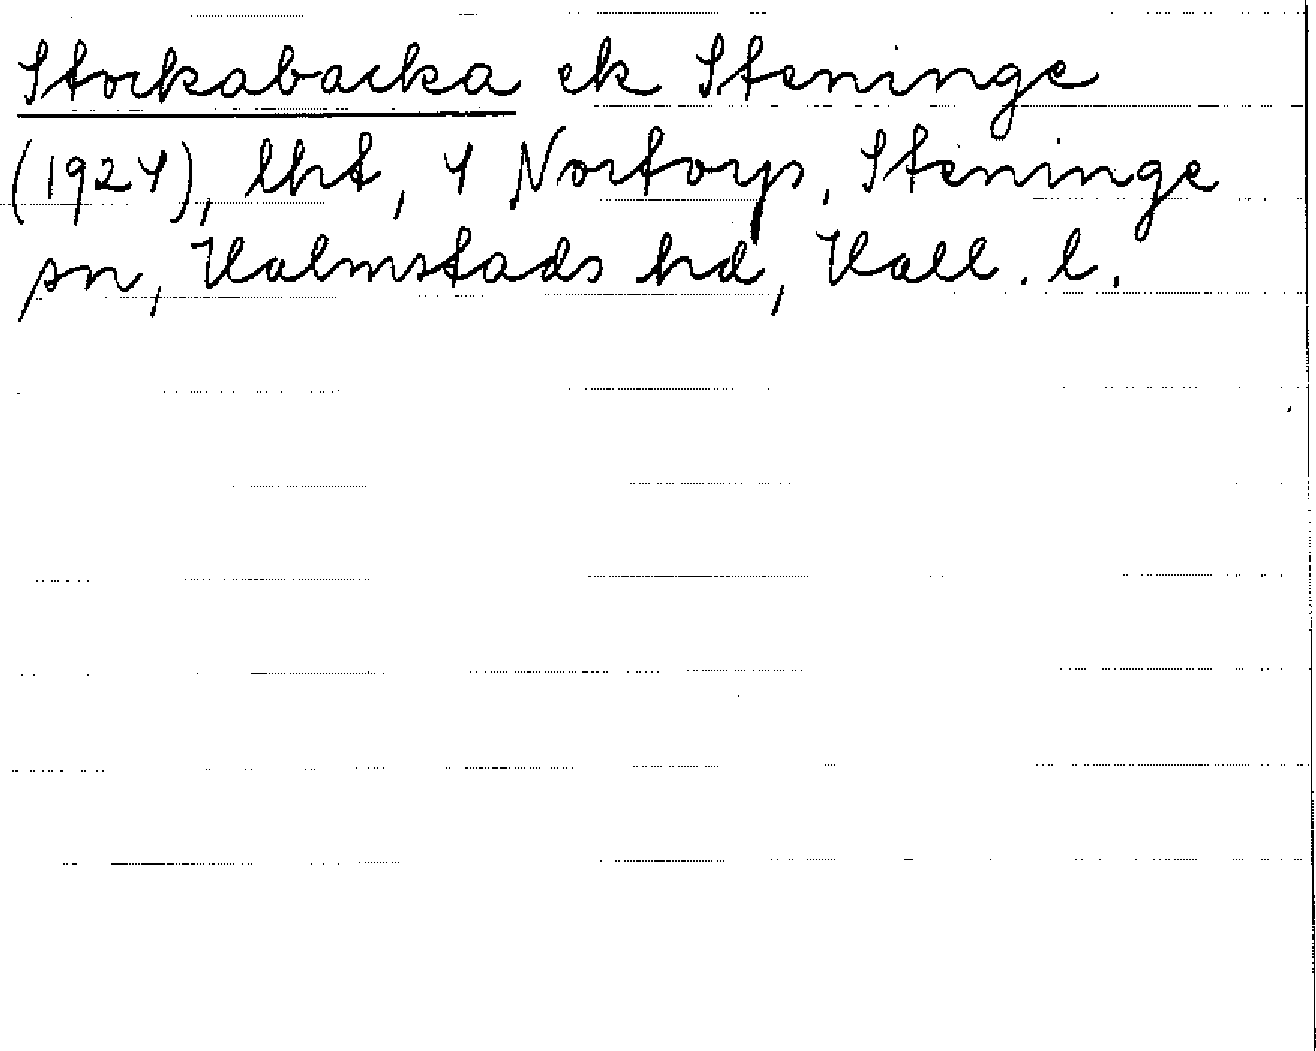 Stockabacka ek Steninge
(1924), lht, 4 Nortorp, Steninge
sn, Halmstads hd, Hall. l.